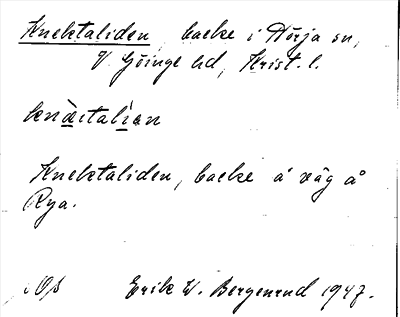 Knektaliden, backe i Hörja sn,
V. Göinge hd, Krist. l.
knä̀ctalìan
Knektaliden, backe å väg å
Rya.
Erik W. Bergenrud 1947.